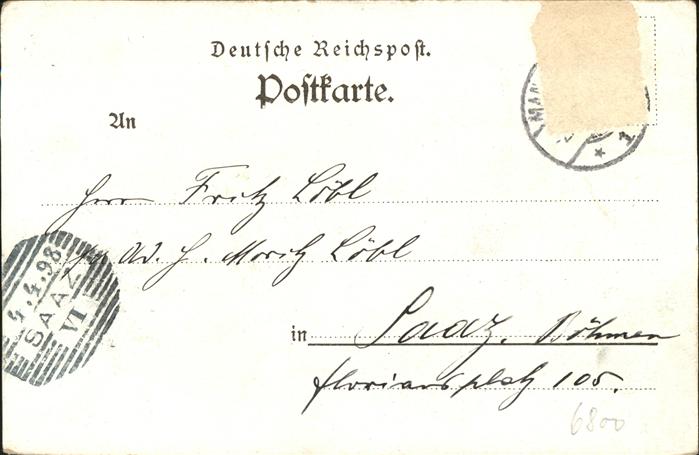 Deutsche Reichspost.
Postkarte.
An
Herrn Fritz Löbl
Ad. H. Moritz Löbl
in Saaz, Böhmen
Floriansplatz 105.
6800
4.4.98
SAAZ
VI
MAN